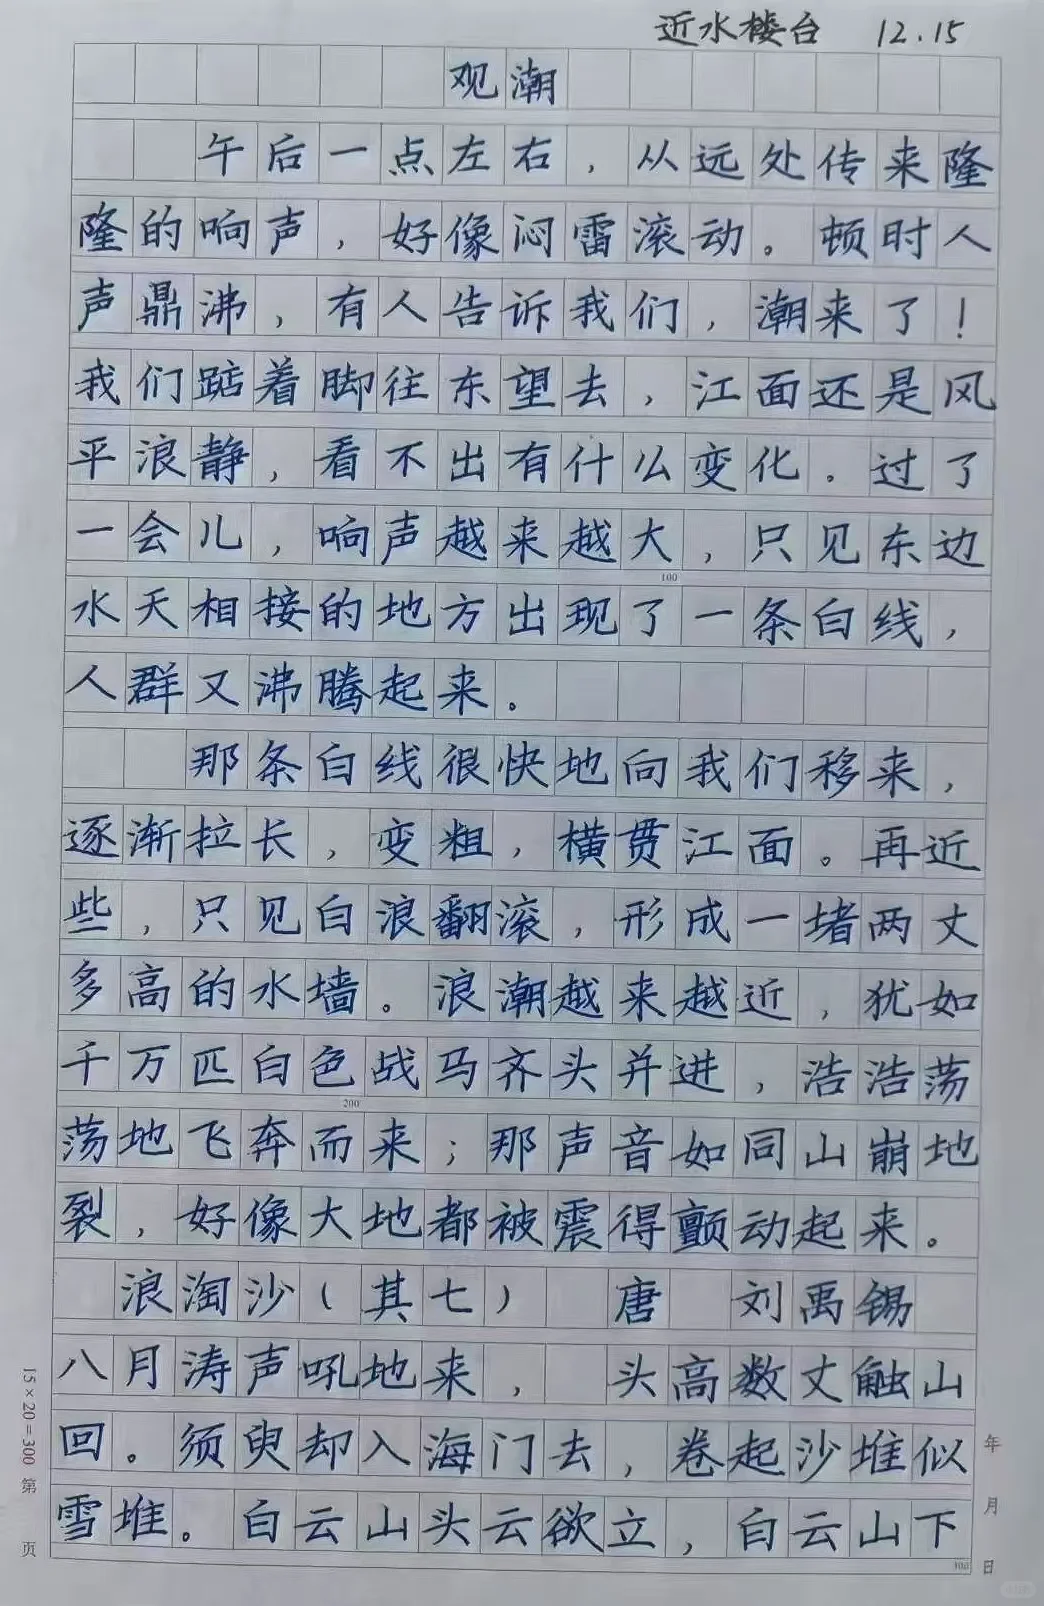 近水楼台 12.15
观潮
午后一点左右，从远处传来隆
隆的响声，好像闷雷滚动。顿时人
声鼎沸，有人告诉我们，潮来了！
我们踮着脚往东望去，江面还是风
平浪静，看不出有什么变化。过了
一会儿，响声越来越大，只见东边
100
水天相接的地方出现了一条白线，
人群又沸腾起来。
那条白线很快地向我们移来，
逐渐拉长，变粗，横贯江面。再近
些，只见白浪翻滚，形成一堵两丈
多高的水墙。浪潮越来越近，犹如
千万匹白色战马齐头并进，浩浩荡
200
荡地飞奔而来；那声音如同山崩地
裂，好像大地都被震得颤动起来。
浪淘沙（其七） 唐 刘禹锡
八月涛声吼地来， 头高数丈触山
回。须臾却入海门去，卷起沙堆似
雪堆。白云山头云欲立，白云山下
300
15×20=300 第 页
年 月 日